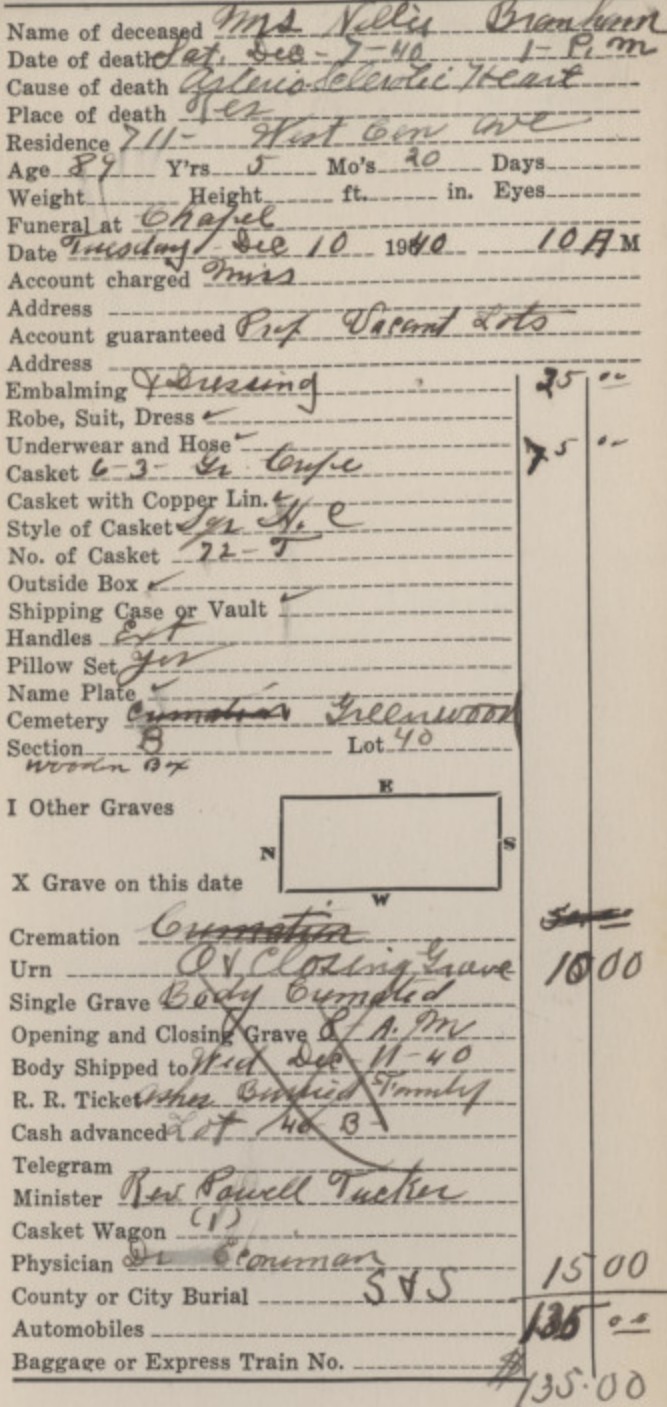 Name of deceased Mrs Nellie Branham
Date of death Sat. Dec - 7 - 40 1 - P. m
Cause of death Arteriosclerotic Heart
Place of death Res
Residence 711 - West Cen ave
Age 89 Y'rs 5 Mo's 20 Days
Weight Height ft. in. Eyes
Funeral at Chapel
Date Tuesday Dec 10 1940 10 A M
Account charged Miss
Address
Account guaranteed Prof Vacant Lots
Address
Embalming & Dressing 25 00
Robe, Suit, Dress ✓
Underwear and Hose ✓
Casket 6-3- Gr. Crepe 75 00
Casket with Copper Lin. ✓
Style of Casket Sqr H. C
No. of Casket 72 - T
Outside Box ✓
Shipping Case or Vault ✓
Handles Ext
Pillow Set yes
Name Plate ✓
Cemetery Cremation Greenwood
Section B Lot 40
wooden Box
E
I Other Graves
N S
X Grave on this date
W
Cremation Cremation
Urn O & Closing Grave 10 00
Single Grave Body Cremated
Opening and Closing Grave 8 A. M
Body Shipped to Wed Dec - 11 - 40
R. R. Ticket Ashes Burried Family
Cash advanced Lot 40 B -
Telegram
Minister Rev Powell Tucker
Casket Wagon (1)
Physician Dr
County or City Burial S & S 15 00
Automobiles 135 00
Baggage or Express Train No. $135.00